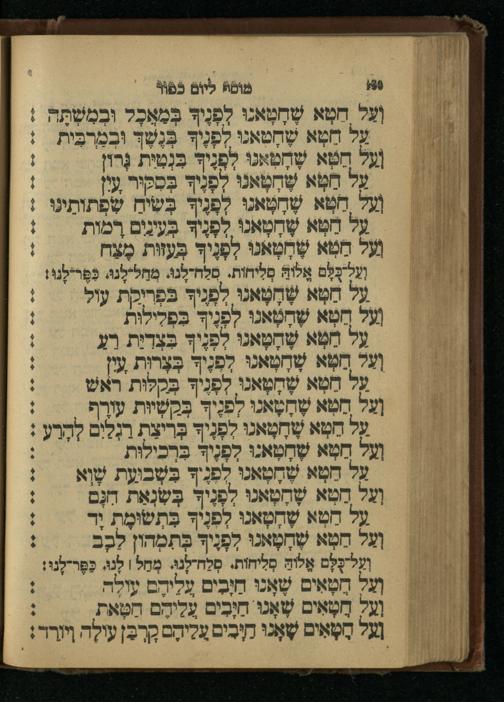 מוסף ליום כפור
וְעַל חֵטְא שֶׁחָטָאנוּ לְפָנֶיךָ בְּמַאֲכָל וּבְמִשְׁתֶּה :
עַל חֵטְא שֶׁחָטָאנוּ לְפָנֶיךָ בְּנֶשֶׁךְ וּבְמַרְבִּית :
וְעַל חֵטְא שֶׁחָטָאנוּ לְפָנֶיךָ בִּנְטִיַּת גָּרוֹן :
עַל חֵטְא שֶׁחָטָאנוּ לְפָנֶיךָ בְּסִקּוּר עָיִן :
וְעַל חֵטְא שֶׁחָטָאנוּ לְפָנֶיךָ בְּשִׂיחַ שִׂפְתוֹתֵינוּ :
עַל חֵטְא שֶׁחָטָאנוּ לְפָנֶיךָ בְּעֵינַיִם רָמוֹת :
וְעַל חֵטְא שֶׁחָטָאנוּ לְפָנֶיךָ בְּעַזּוּת מֶצַח :
וְעַל־כֻּלָּם אֱלוֹהַּ סְלִיחוֹת. סְלַח־לָנוּ. מְחַל־לָנוּ. כַּפֶּר־לָנוּ :
עַל חֵטְא שֶׁחָטָאנוּ לְפָנֶיךָ בִּפְרִיקַת עוֹל :
וְעַל חֵטְא שֶׁחָטָאנוּ לְפָנֶיךָ בִּפְלִילוּת :
עַל חֵטְא שֶׁחָטָאנוּ לְפָנֶיךָ בִּצְדִיַּת רֵעַ :
וְעַל חֵטְא שֶׁחָטָאנוּ לְפָנֶיךָ בְּצָרוּת עָיִן :
עַל חֵטְא שֶׁחָטָאנוּ לְפָנֶיךָ בְּקַלּוּת רֹאשׁ :
וְעַל חֵטְא שֶׁחָטָאנוּ לְפָנֶיךָ בְּקַשְׁיוּת עוֹרֶף :
עַל חֵטְא שֶׁחָטָאנוּ לְפָנֶיךָ בְּרִיצַת רַגְלַיִם לְהָרַע :
וְעַל חֵטְא שֶׁחָטָאנוּ לְפָנֶיךָ בִּרְכִילוּת :
עַל חֵטְא שֶׁחָטָאנוּ לְפָנֶיךָ בִּשְׁבוּעַת שָׁוְא :
וְעַל חֵטְא שֶׁחָטָאנוּ לְפָנֶיךָ בְּשִׂנְאַת חִנָּם :
עַל חֵטְא שֶׁחָטָאנוּ לְפָנֶיךָ בִּתְשׂוּמֶת יָד :
וְעַל חֵטְא שֶׁחָטָאנוּ לְפָנֶיךָ בְּתִמְהוֹן לֵבָב :
וְעַל־כֻּלָּם אֱלוֹהַּ סְלִיחוֹת. סְלַח־לָנוּ. מְחַל לָנוּ. כַּפֶּר־לָנוּ :
וְעַל חֲטָאִים שֶׁאָנוּ חַיָּבִים עֲלֵיהֶם עוֹלָה :
וְעַל חֲטָאִים שֶׁאָנוּ חַיָּבִים עֲלֵיהֶם חַטָּאת :
וְעַל חֲטָאִים שֶׁאָנוּ חַיָּבִים עֲלֵיהֶם קָרְבַּן עוֹלֶה וְיוֹרֵד :